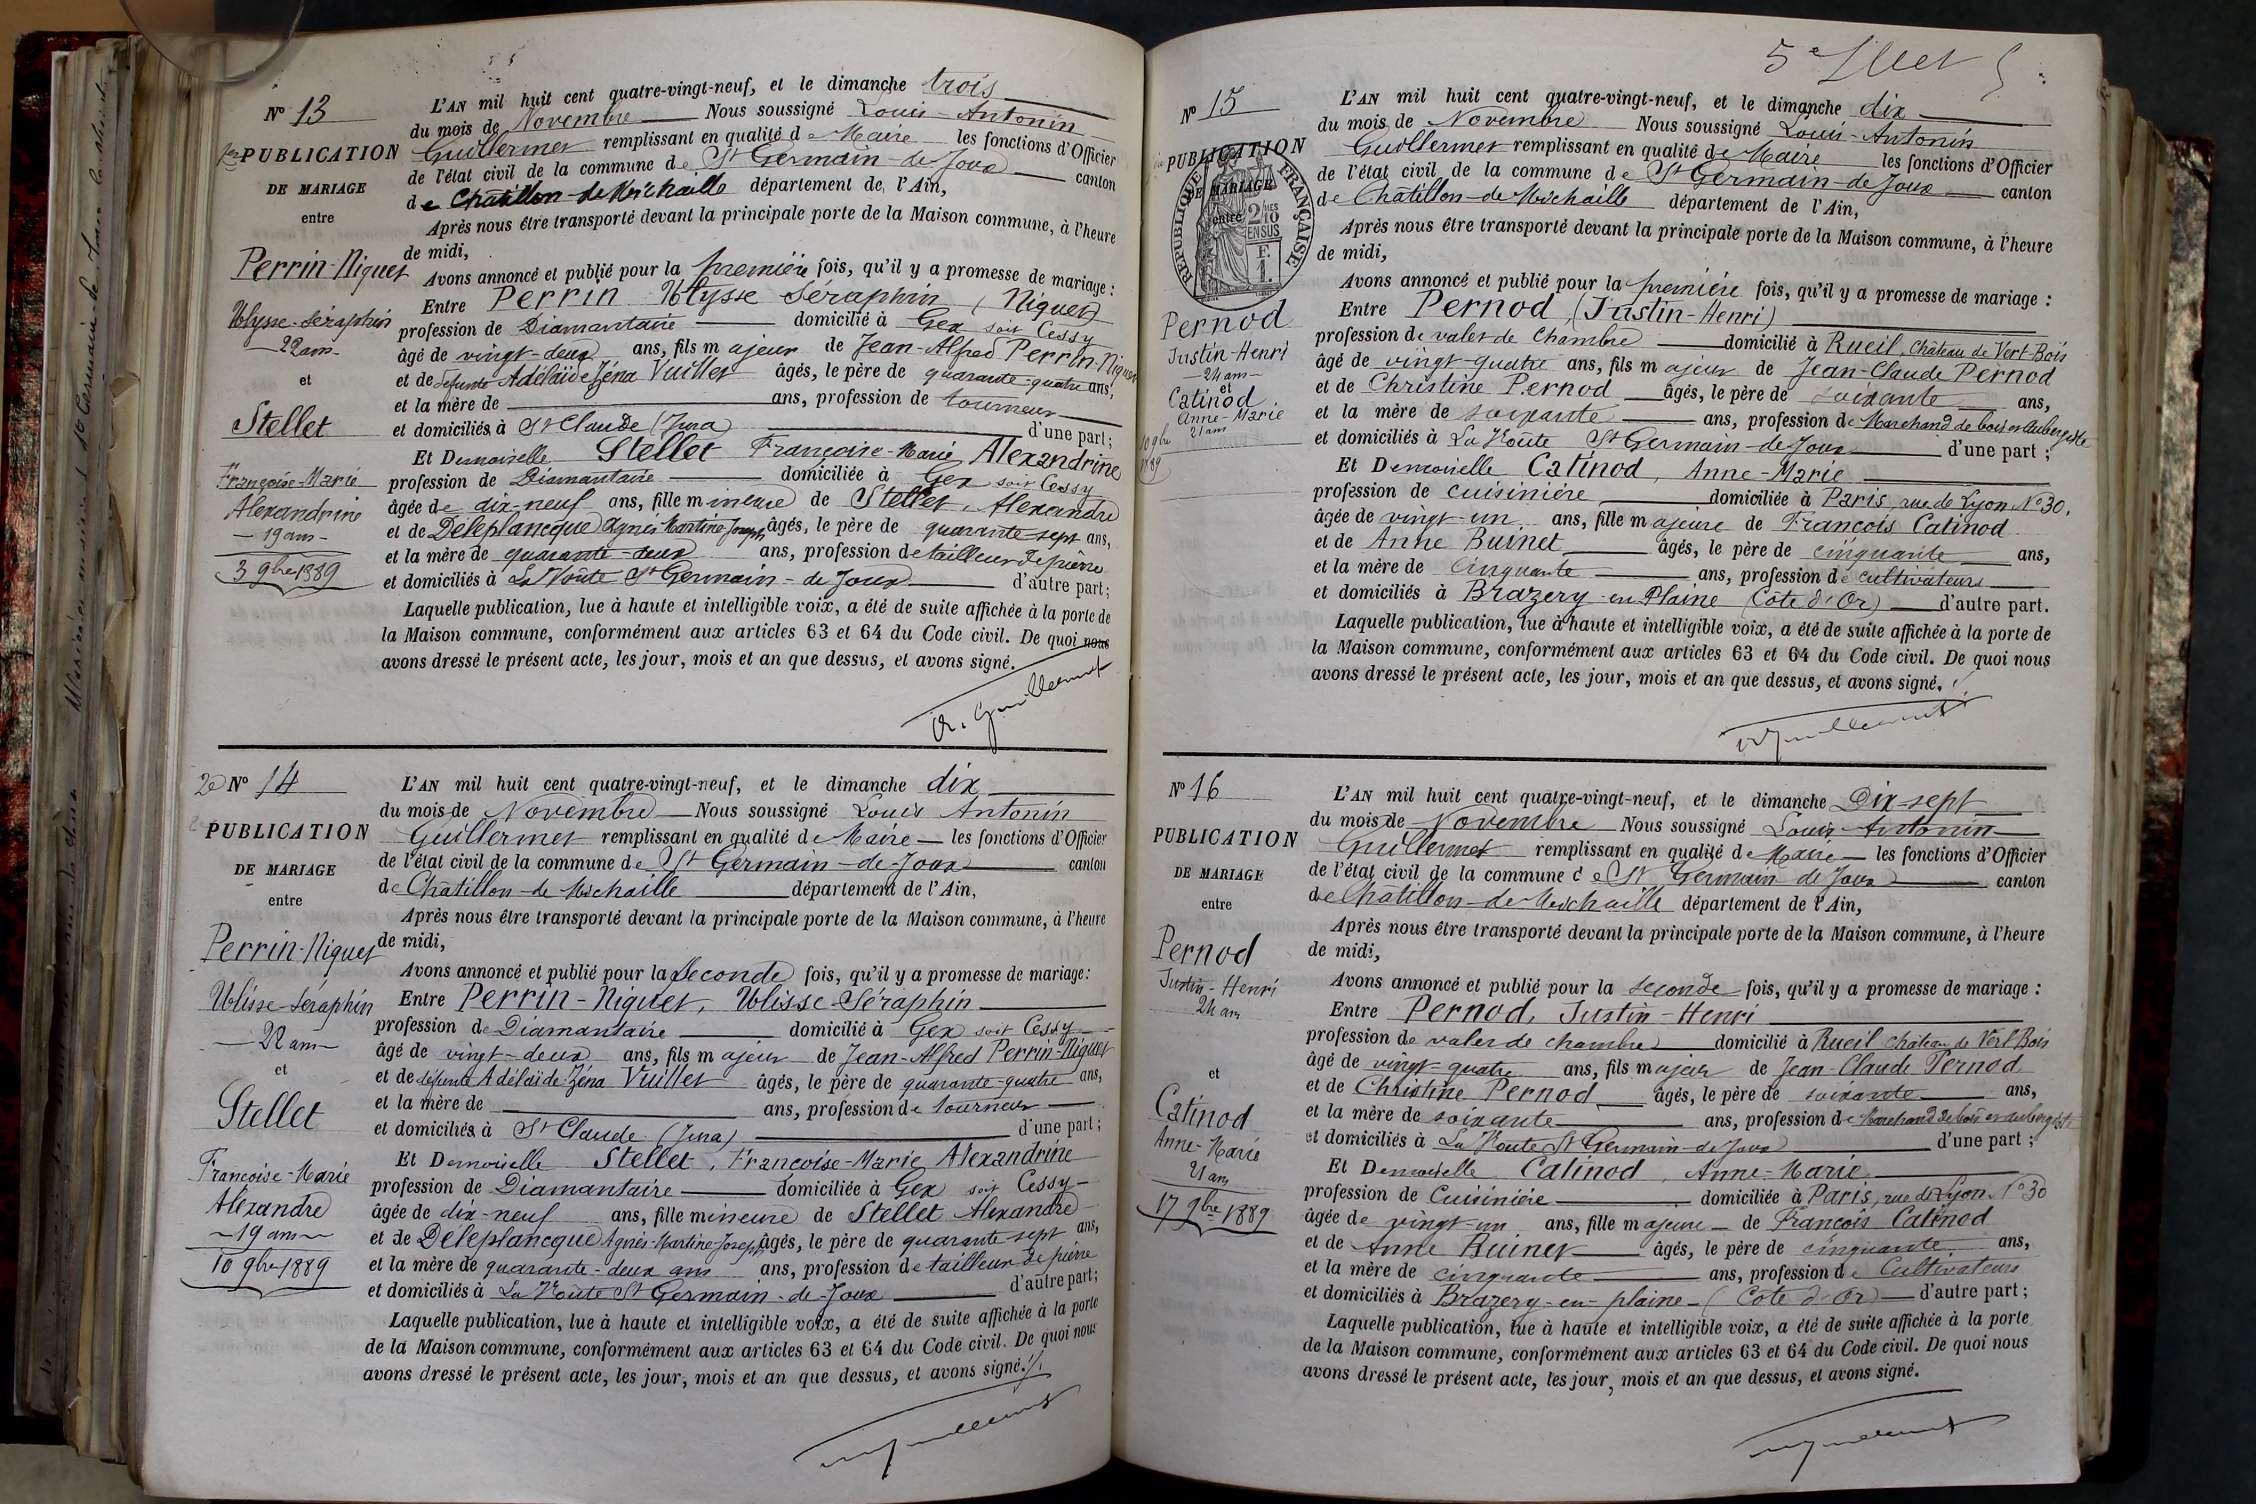 Nº 13
1ère PUBLICATION
DE MARIAGE
entre
Perrin-Niquet
Ulysse-Séraphin
22 ans
et
Stellet
Françoise-Marie
Alexandrine
19 ans
3 9bre 1889
L'AN mil huit cent quatre-vingt-neuf, et le dimanche trois
du mois de Novembre Nous soussigné Louis-Antonin
Guillermet remplissant en qualité de Maire les fonctions d'Officier
de l'état civil de la commune de St Germain-de-Joux canton
de Châtillon-de-Michaille département de l'Ain,
Après nous être transporté devant la principale porte de la Maison commune, à l'heure
de midi,
Avons annoncé et publié pour la première fois, qu'il y a promesse de mariage :
Entre Perrin Ulysse Séraphin (Niquet)
profession de Diamantaire domicilié à Gex soit Cessy
âgé de vingt-deux ans, fils majeur de Jean-Alfred Perrin-Niquet
et de défunte Adélaïde Zéna Vuillet âgés, le père de quarante-quatre ans,
et la mère de ans, profession de tourneur
et domiciliés à St Claude (Jura) d'une part ;
Et Demoiselle Stellet Françoise-Marie Alexandrine
profession de Diamantaire domiciliée à Gex soit Cessy
âgée de dix-neuf ans, fille mineure de Stellet, Alexandre
et de Deleplancque Agnès Martine Joseph âgés, le père de quarante sept ans,
et la mère de quarante-deux ans, profession de tailleur de pierre
et domiciliés à La Voûte St Germain-de-Joux d'autre part ;
Laquelle publication, lue à haute et intelligible voix, a été de suite affichée à la porte de
la Maison commune, conformément aux articles 63 et 64 du Code civil. De quoi nous
avons dressé le présent acte, les jour, mois et an que dessus, et avons signé.
A. Guillermet
2e Nº 14
PUBLICATION
DE MARIAGE
entre
Perrin-Niquet
Ulisse-Séraphin
22 ans
et
Stellet
Françoise-Marie
Alexandre
19 ans
10 9bre 1889
L'AN mil huit cent quatre-vingt-neuf, et le dimanche dix
du mois de Novembre Nous soussigné Louis Antonin
Guillermet remplissant en qualité de Maire les fonctions d'Officier
de l'état civil de la commune de St Germain-de-Joux canton
de Châtillon-de-Michaille département de l'Ain,
Après nous être transporté devant la principale porte de la Maison commune, à l'heure
de midi,
Avons annoncé et publié pour la seconde fois, qu'il y a promesse de mariage :
Entre Perrin-Niquet, Ulisse-Séraphin
profession de Diamantaire domicilié à Gex soit Cessy
âgé de vingt-deux ans, fils majeur de Jean-Alfred Perrin-Niquet
et de défunte Adélaïde-Zéna Vuillet âgés, le père de quarante-quatre ans,
et la mère de ans, profession de tourneur
et domiciliés à St Claude (Jura) d'une part ;
Et Demoiselle Stellet, Françoise-Marie Alexandrine
profession de Diamantaire domiciliée à Gex soit Cessy
âgée de dix-neuf ans, fille mineure de Stellet Alexandre
et de Deleplancque Agnès-Martine-Joseph âgés, le père de quarante sept ans,
et la mère de quarante-deux ans ans, profession de tailleur de pierre
et domiciliés à La Voûte St Germain-de-Joux d'autre part ;
Laquelle publication, lue à haute et intelligible voix, a été de suite affichée à la porte
de la Maison commune, conformément aux articles 63 et 64 du Code civil. De quoi nous
avons dressé le présent acte, les jour, mois et an que dessus, et avons signé.
5e
Nº 15
PUBLICATION
DE MARIAGE
entre
RÉPUBLIQUE FRANÇAISE
2/10 MES
EN SUS
F.
1.
Pernod
Justin-Henri
24 ans
et
Catinod
Anne-Marie
21 ans
10 9bre
1889
L'AN mil huit cent quatre-vingt-neuf, et le dimanche dix
du mois de Novembre Nous soussigné Louis-Antonin
Guillermet remplissant en qualité de Maire les fonctions d'Officier
de l'état civil de la commune de St Germain-de-Joux canton
de Châtillon-de-Michaille département de l'Ain,
Après nous être transporté devant la principale porte de la Maison commune, à l'heure
de midi,
Avons annoncé et publié pour la première fois, qu'il y a promesse de mariage :
Entre Pernod, (Justin-Henri)
profession de valet de chambre domicilié à Rueil, Château de Vert-Bois
âgé de vingt-quatre ans, fils majeur de Jean-Claude Pernod
et de Christine Pernod âgés, le père de soixante ans,
et la mère de soixante ans, profession de Marchand de bois et Aubergiste
et domiciliés à La Voute St Germain-de-Joux d'une part ;
Et Demoiselle Catinod, Anne-Marie
profession de cuisinière domiciliée à Paris, rue de Lyon Nº 30,
âgée de vingt-un ans, fille majeure de François Catinod
et de Anne Buinet âgés, le père de cinquante ans,
et la mère de cinquante ans, profession de cultivateurs
et domiciliés à Brazery-en-Plaine (Côte d'Or) d'autre part.
Laquelle publication, lue à haute et intelligible voix, a été de suite affichée à la porte de
la Maison commune, conformément aux articles 63 et 64 du Code civil. De quoi nous
avons dressé le présent acte, les jour, mois et an que dessus, et avons signé.
A Guillermet
Nº 16
PUBLICATION
DE MARIAGE
entre
Pernod
Justin-Henri
24 ans
et
Catinod
Anne-Marie
21 ans
17 9bre 1889
L'AN mil huit cent quatre-vingt-neuf, et le dimanche Dix-sept
du mois de Novembre Nous soussigné Louis-Antonin
Guillermet remplissant en qualité de Maire les fonctions d'Officier
de l'état civil de la commune de St Germain de Joux canton
de Châtillon-de-Michaille département de l'Ain,
Après nous être transporté devant la principale porte de la Maison commune, à l'heure
de midi,
Avons annoncé et publié pour la seconde fois, qu'il y a promesse de mariage :
Entre Pernod, Justin-Henri
profession de valet de chambre domicilié à Rueil château de Vert-Bois
âgé de vingt-quatre ans, fils majeur de Jean-Claude Pernod
et de Christine Pernod âgés, le père de soixante ans,
et la mère de soixante ans, profession de Marchand de bois et aubergiste
et domiciliés à La Voute St Germain-de-Joux d'une part ;
Et Demoiselle Catinod, Anne-Marie
profession de Cuisinière domiciliée à Paris, rue de Lyon Nº 30
âgée de vingt-un ans, fille majeure de François Catinod
et de Anne Buinet âgés, le père de cinquante ans,
et la mère de cinquante ans, profession de Cultivateurs
et domiciliés à Brazery-en-plaine (Côte d'Or) d'autre part ;
Laquelle publication, lue à haute et intelligible voix, a été de suite affichée à la porte
de la Maison commune, conformément aux articles 63 et 64 du Code civil. De quoi nous
avons dressé le présent acte, les jour, mois et an que dessus, et avons signé.